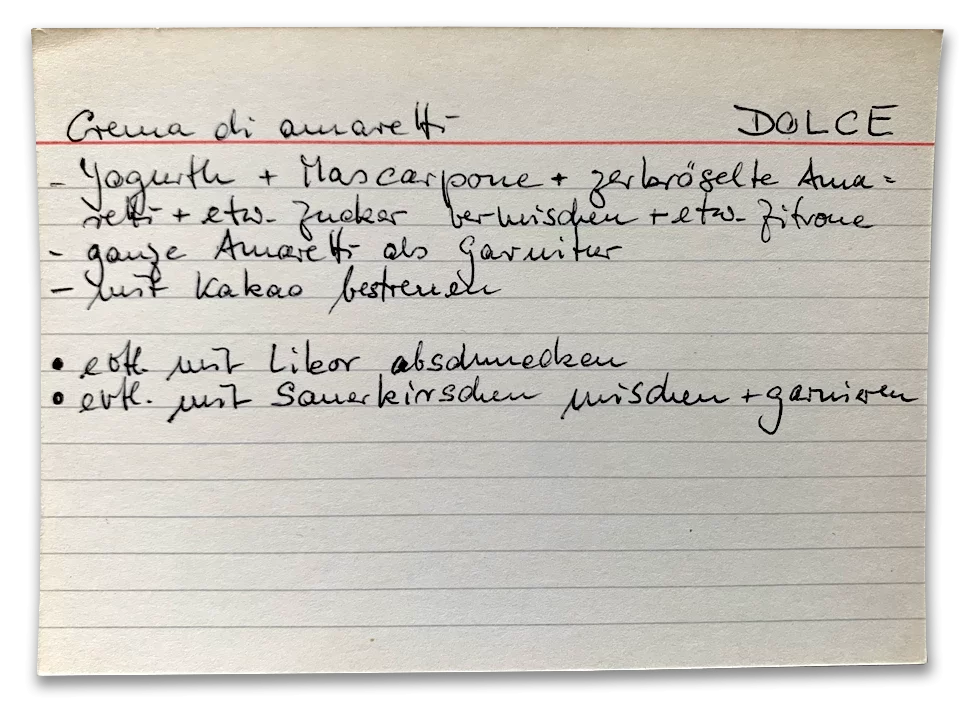 Crema di amaretti DOLCE
- Yogurth + Mascarpone + zerbröselte Ama=
retti + etw. Zucker vermischen + etw. Zitrone
- ganze Amaretti als Garnitur
- mit Kakao bestreuen
• evtl. mit Likör abschmecken
• evtl. mit Sauerkirschen mischen + garnieren